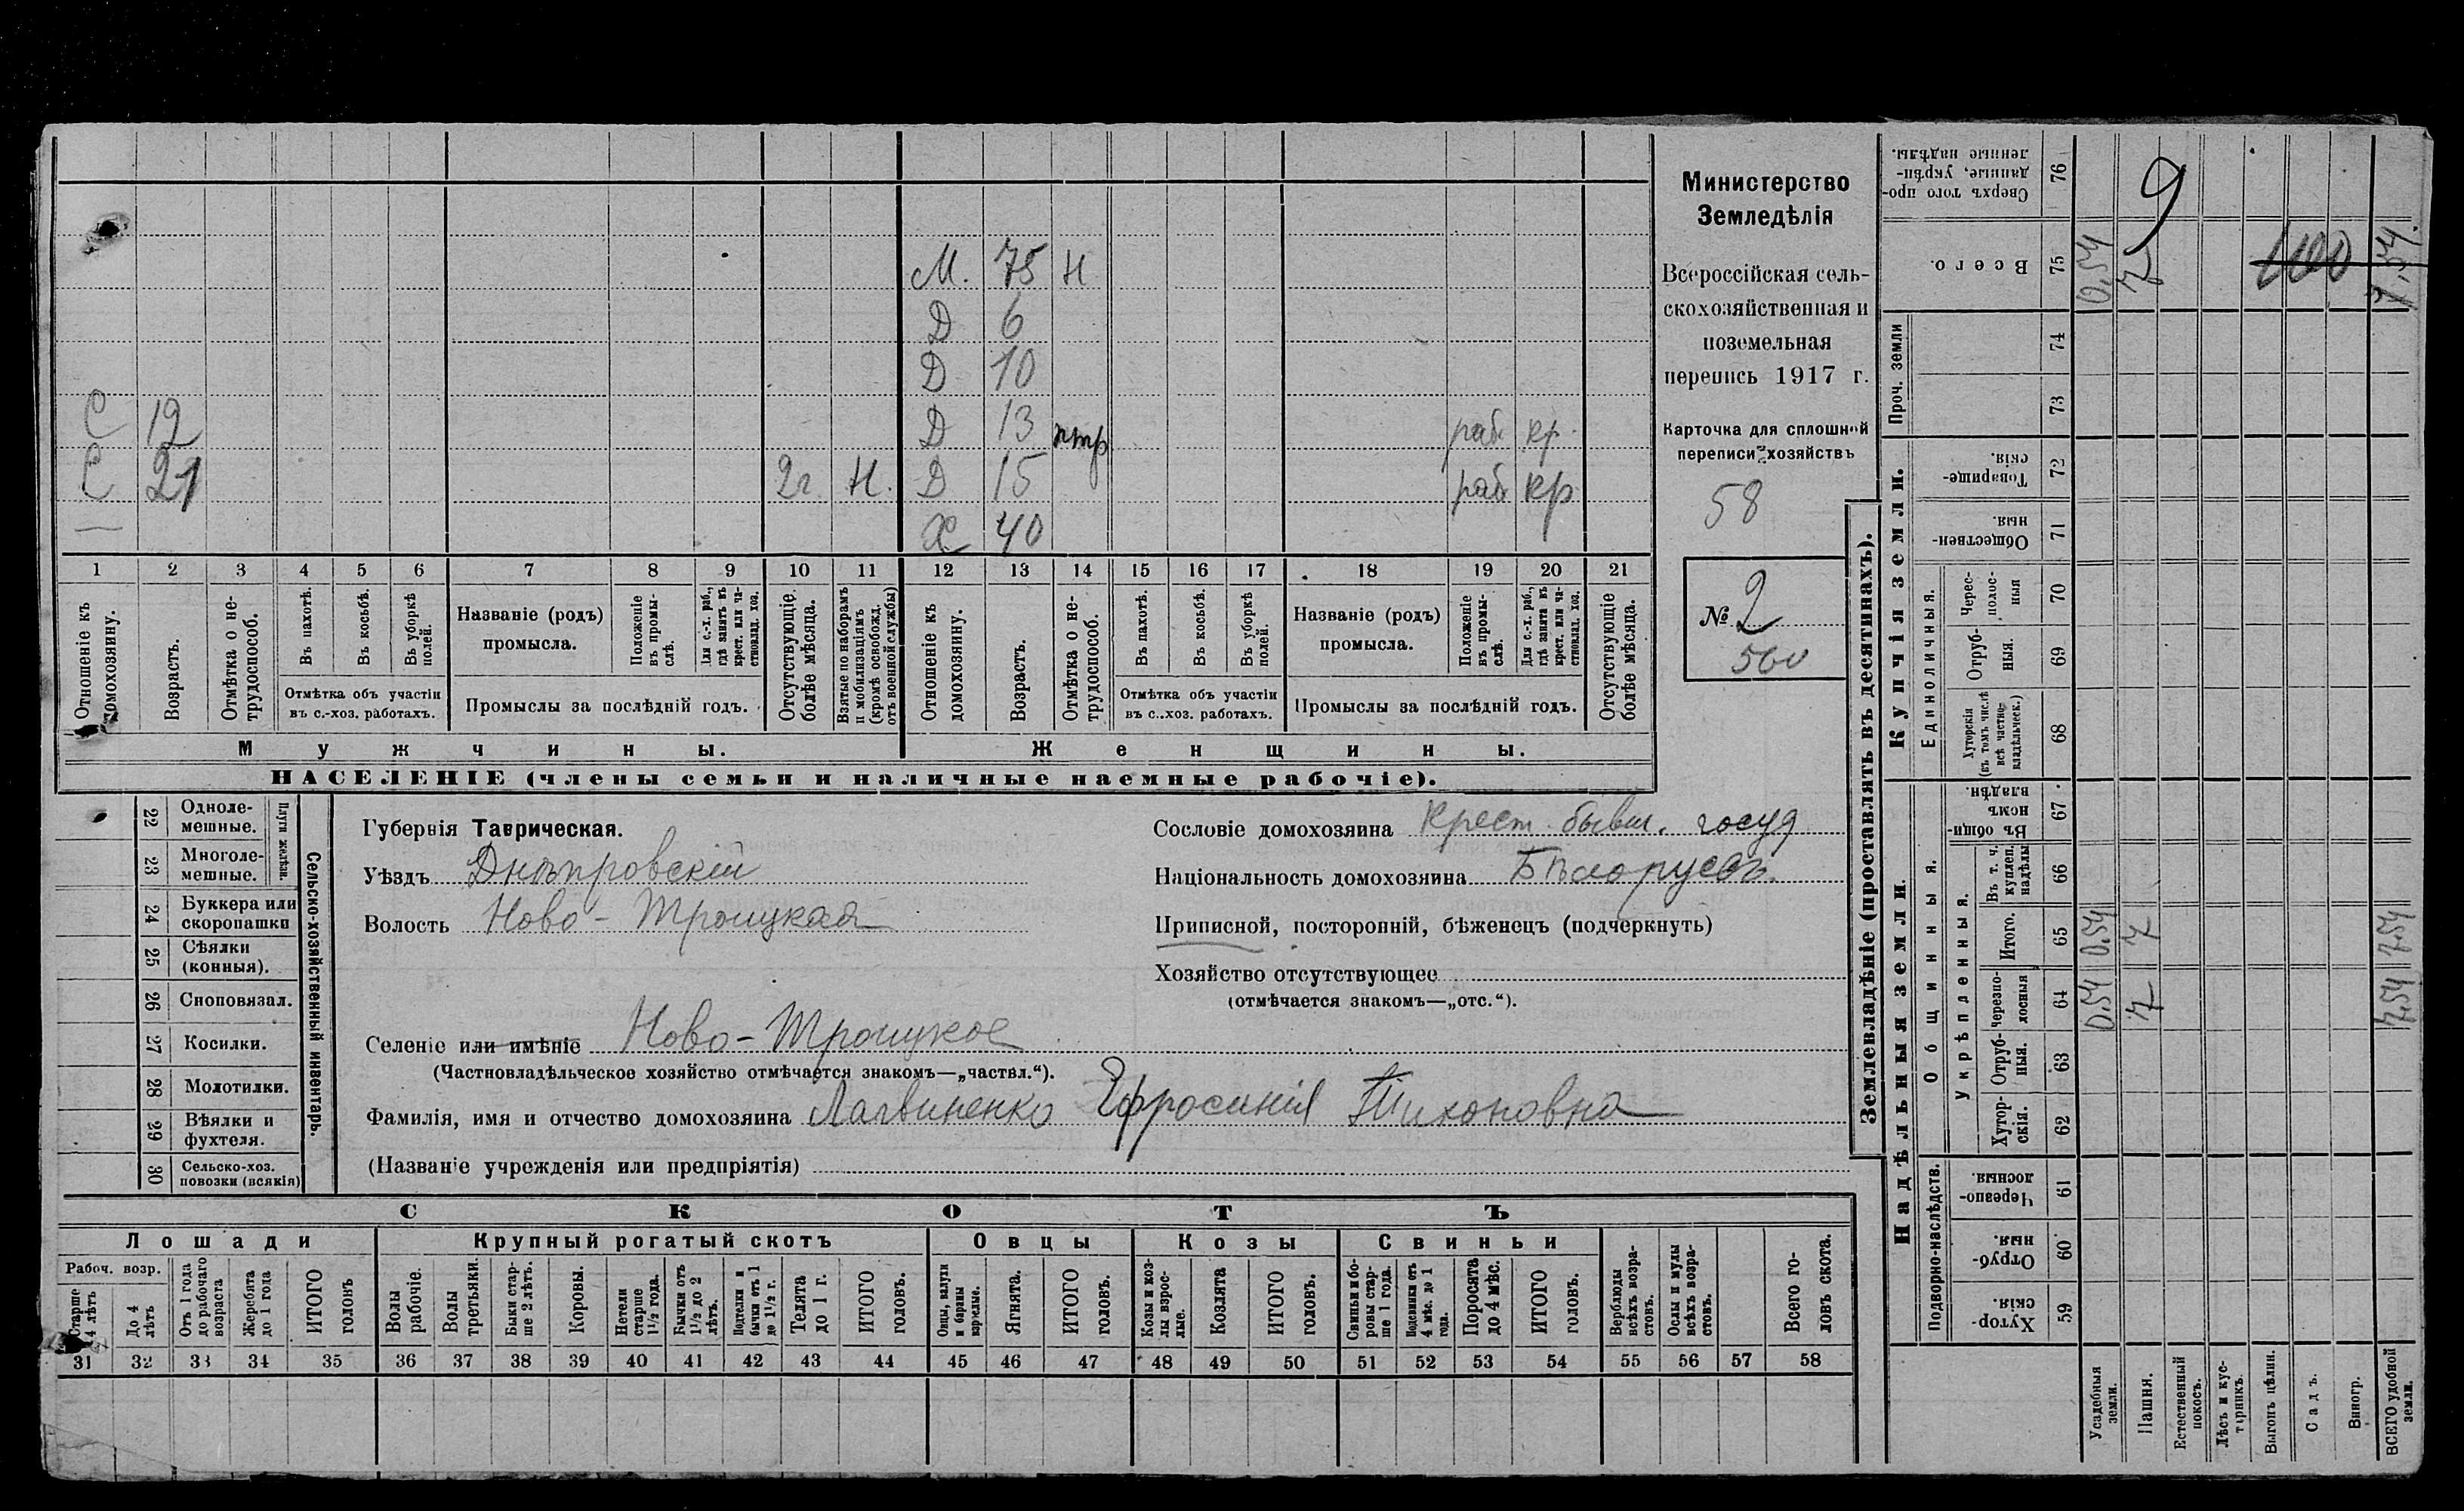 М. 75 Н
Д 6
Д 10
С 12 Д 13 раб. кр.
С 21 2г. Н. Д 15 раб кр.
— Х 40
1 2 3 4 5 6 7 8 9 10 11 12 13 14 15 16 17 18 19 20 21
Отношеніе къ домохозяину.
Возрастъ.
Отмѣтка о нетрудоспособ.
Въ пахотѣ.
Въ косьбѣ.
Въ уборкѣ полей.
Отмѣтка объ участіи
въ с.-хоз. работахъ.
Названіе (родъ)
промысла.
Положеніе въ промыслѣ.
Для с.-х. раб., гдѣ занятъ въ крест. или частновлад. хоз.
Промыслы за послѣдній годъ.
Отсутствующіе болѣе мѣсяца.
Взятые по наборамъ и мобилизаціямъ (кромѣ освобожд. отъ военной службы)
Отношеніе къ домохозяину.
Возрастъ.
Отмѣтка о нетрудоспособ.
Въ пахотѣ.
Въ косьбѣ.
Въ уборкѣ полей.
Отмѣтка объ участіи
въ с.-хоз. работахъ.
Названіе (родъ)
промысла.
Положеніе въ промыслѣ.
Для с.-х. раб., гдѣ занята въ крест. или частновлад. хоз.
Промыслы за послѣдній годъ.
Отсутствующіе болѣе мѣсяца.
Мужчины. Женщины.
НАСЕЛЕНІЕ (члены семьи и наличные наемные рабочіе).
Министерство
Земледѣлія
Всероссійская сель-
скохозяйственная и
поземельная
перепись 1917 г.
Карточка для сплошной
переписи хозяйствъ
58
№ 2
560
22 Одноле-
мешные.
23 Многоле-
мешные.
Плуги желѣзн.
24 Буккера или
скоропашки
25 Сѣялки
(конныя).
26 Сноповязал.
27 Косилки.
28 Молотилки.
29 Вѣялки и
фухтеля.
30 Сельско-хоз.
повозки (всякія)
Сельско-хозяйственный инвентарь.
Губернія Таврическая.
Уѣздъ Днѣпровскій
Волость Ново-Троицкая
Селеніе или имѣніе Ново-Троицкое
(Частновладѣльческое хозяйство отмѣчается знакомъ—„частвл.“).
Фамилія, имя и отчество домохозяина Лагвиненко Ефросинія Тихоновна
(Названіе учрежденія или предпріятія)
Сословіе домохозяина крест. бывш. госуд
Національность домохозяина Бѣлорусъ.
Приписной, посторонній, бѣженецъ (подчеркнуть)
Хозяйство отсутствующее
(отмѣчается знакомъ—„отс.“).
СКОТЪ
Лошади Крупный рогатый скотъ Овцы Козы Свиньи
Рабоч. возр.
Старше 4 лѣтъ
До 4 лѣтъ
Отъ 1 года до рабочаго возраста
Жеребята до 1 года
ИТОГО головъ
Волы рабочіе.
Волы третьяки.
Быки старше 2 лѣтъ.
Коровы.
Нетели старше 1 1/2 года.
Бычки отъ 1 1/2 до 2 лѣтъ.
Подтелки и бычки отъ 1 до 1 1/2 г.
Телята до 1 г.
ИТОГО головъ.
Овцы, валухи и бараны взрослые.
Ягнята.
ИТОГО головъ.
Козы и козлы взрослые.
Козлята
ИТОГО головъ.
Свиньи и боровы старше 1 года.
Подсвинки отъ 4 мѣс. до 1 года.
Поросята до 4 мѣс.
ИТОГО головъ.
Верблюды всѣхъ возрастовъ.
Ослы и мулы всѣхъ возрастовъ.
Всего головъ скота.
31 32 33 34 35 36 37 38 39 40 41 42 43 44 45 46 47 48 49 50 51 52 53 54 55 56 57 58
Землевладѣніе (проставлять въ десятинахъ).
Сверхъ того проданные, укрѣпленные надѣлы. 76 9
Всего. 75 0.54 7 100 7.54.
Проч. земли
74
73
Купчія земли.
Товарищескія. 72
Общественныя. 71
Единоличныя.
Чересполосныя 70
Отрубныя. 69
Хуторскія (въ томъ числѣ всѣ частновладѣльческ.) 68
Надѣльныя земли.
Общинныя.
Въ общинномъ владѣн. 67
Укрѣпленныя.
Въ т. ч. куплен. надѣлы 66
Итого. 65 0.54 7 7.54
Черезполосныя 64 0.54 7 7.54
Отрубныя. 63
Хуторскія. 62
Подворно-наслѣдств.
Черезполосныя 61
Отрубныя. 60
Хуторскія. 59
Усадебныя земли.
Пашня.
Естественный покосъ.
Лѣсъ и кустарникъ.
Выгонъ цѣлин.
Садъ.
Виногр.
ВСЕГО удобной земли.